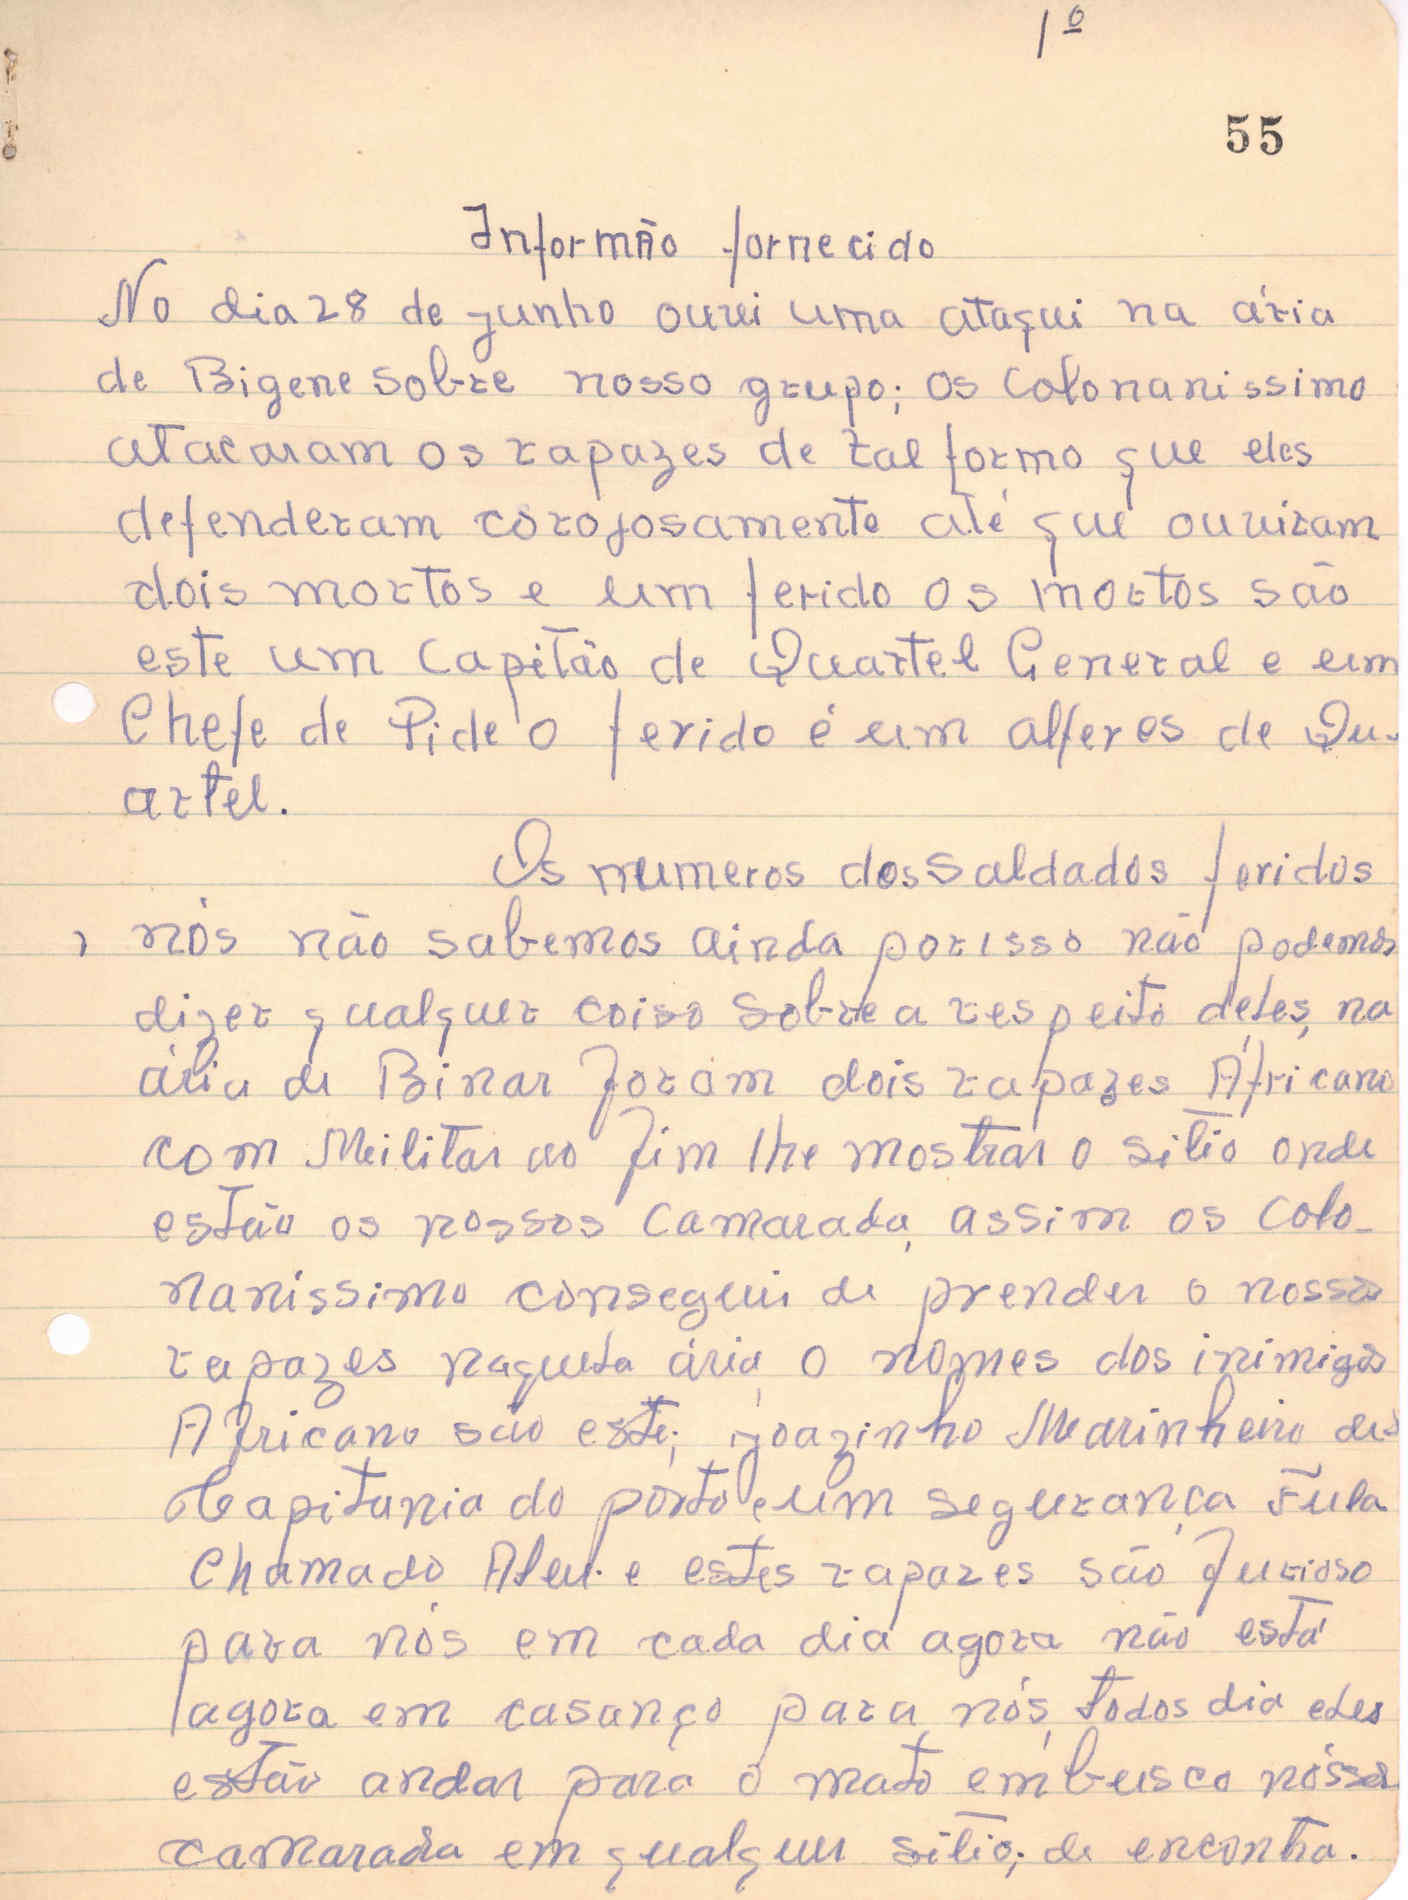 1º
55
Informão fornecido
No dia 28 de junho ouvi uma ataqui na ária
de Bigene sobre nosso grupo; os Colonanissimo
atacaram os rapazes de tal formo que eles
defenderam corojosamente até que ouviram
dois mortos e um ferido os mortos são
este um Capitão de Quartel General e um
Chefe de Pide o ferido é um alferes de Qu-
artel.
Os numeros dos saldados feridos
nós não sabemos ainda porisso não podemos
dizer qualquer coiso sobre a respeito deles, na
ária de Binar foram dois rapazes Áfricano
com Meilitar ao fim lhe mostrar o sitio onde
estão os nossos Camarada, assim os Colo-
nanissimo conseguir de prender o nossos
rapazes naquela ária, o nomes dos inimigos
Africano são este; joazinho Marinheiro de
Capitania do porto e um segurança Fula
Chamado Aleu. e estes rapazes são furioso
para nós em cada dia agora não está
agora em casanço para nós, todos dia eles
estão andar para o mato em busca nóssos
camarada em qualquer sitio; de encontra.